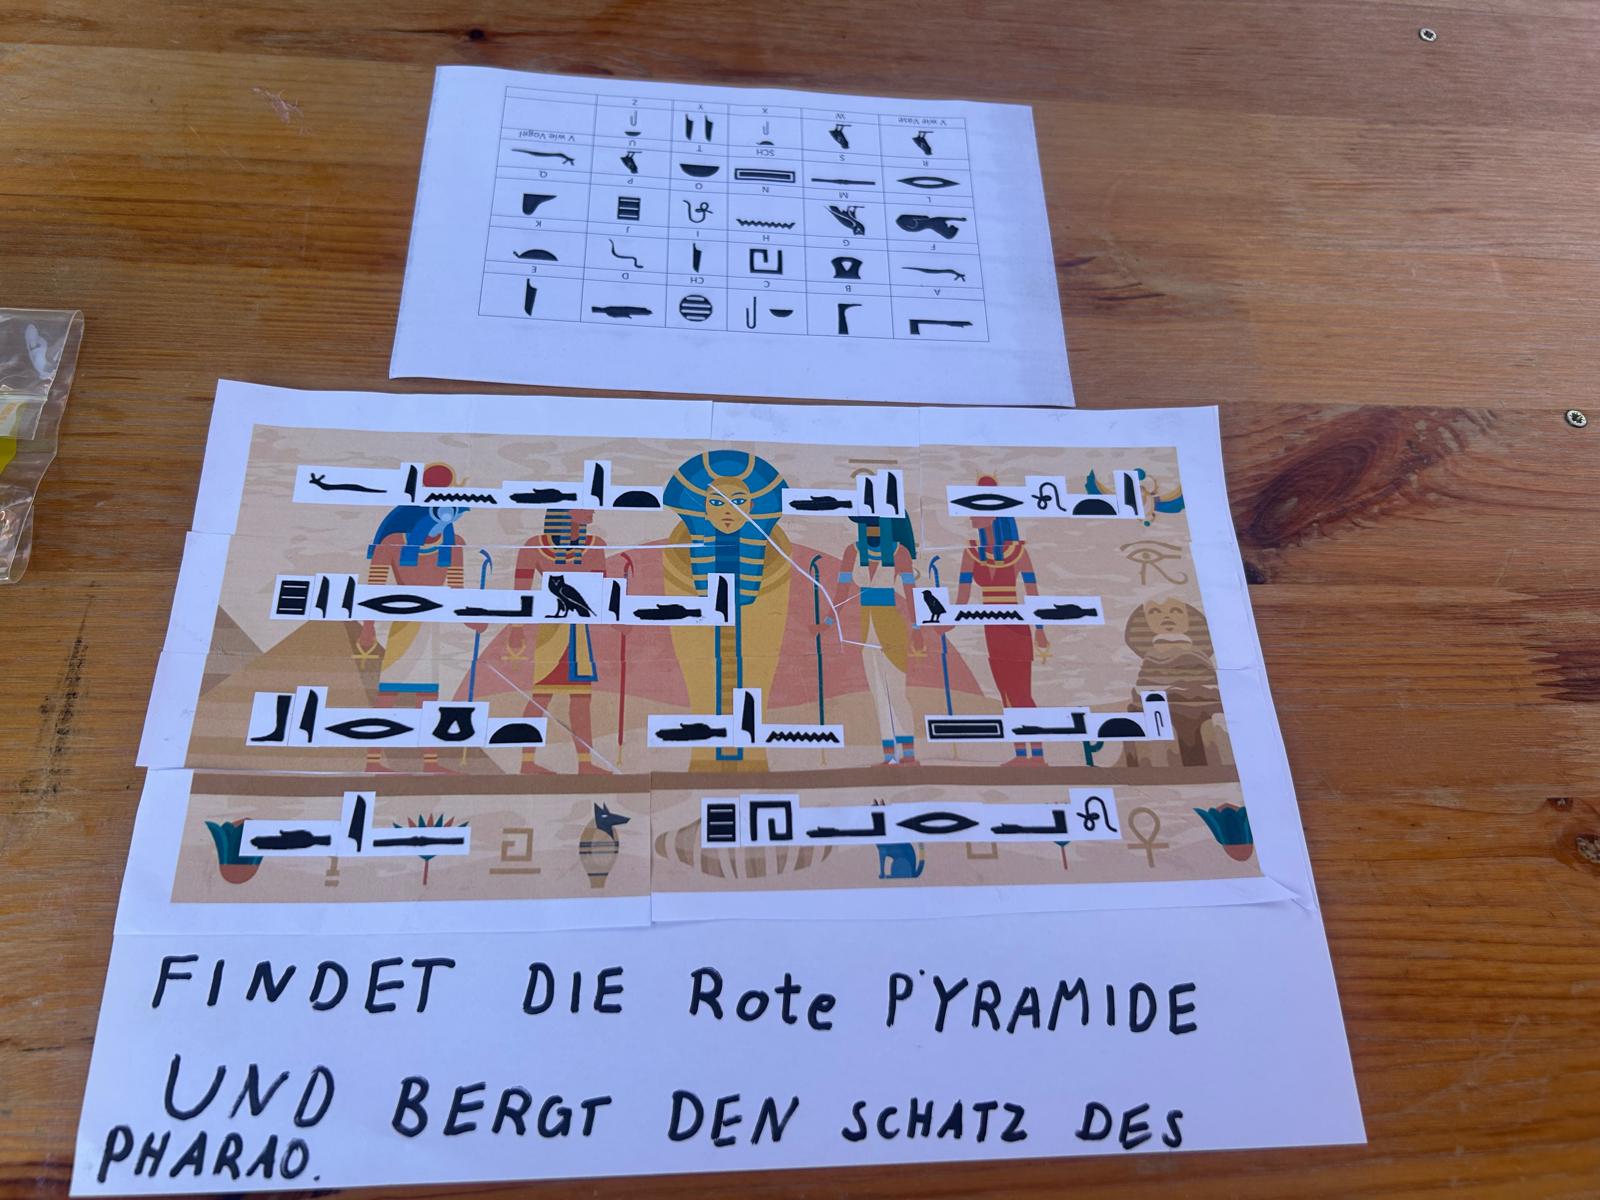 A B C CH D E
F G H I J K
L M N O P Q
R S SCH T U V wie Vogel
V wie Vase W X Y Z
FINDET DIE Rote PYRAMIDE
UND BERGT DEN SCHATZ DES
PHARAO.